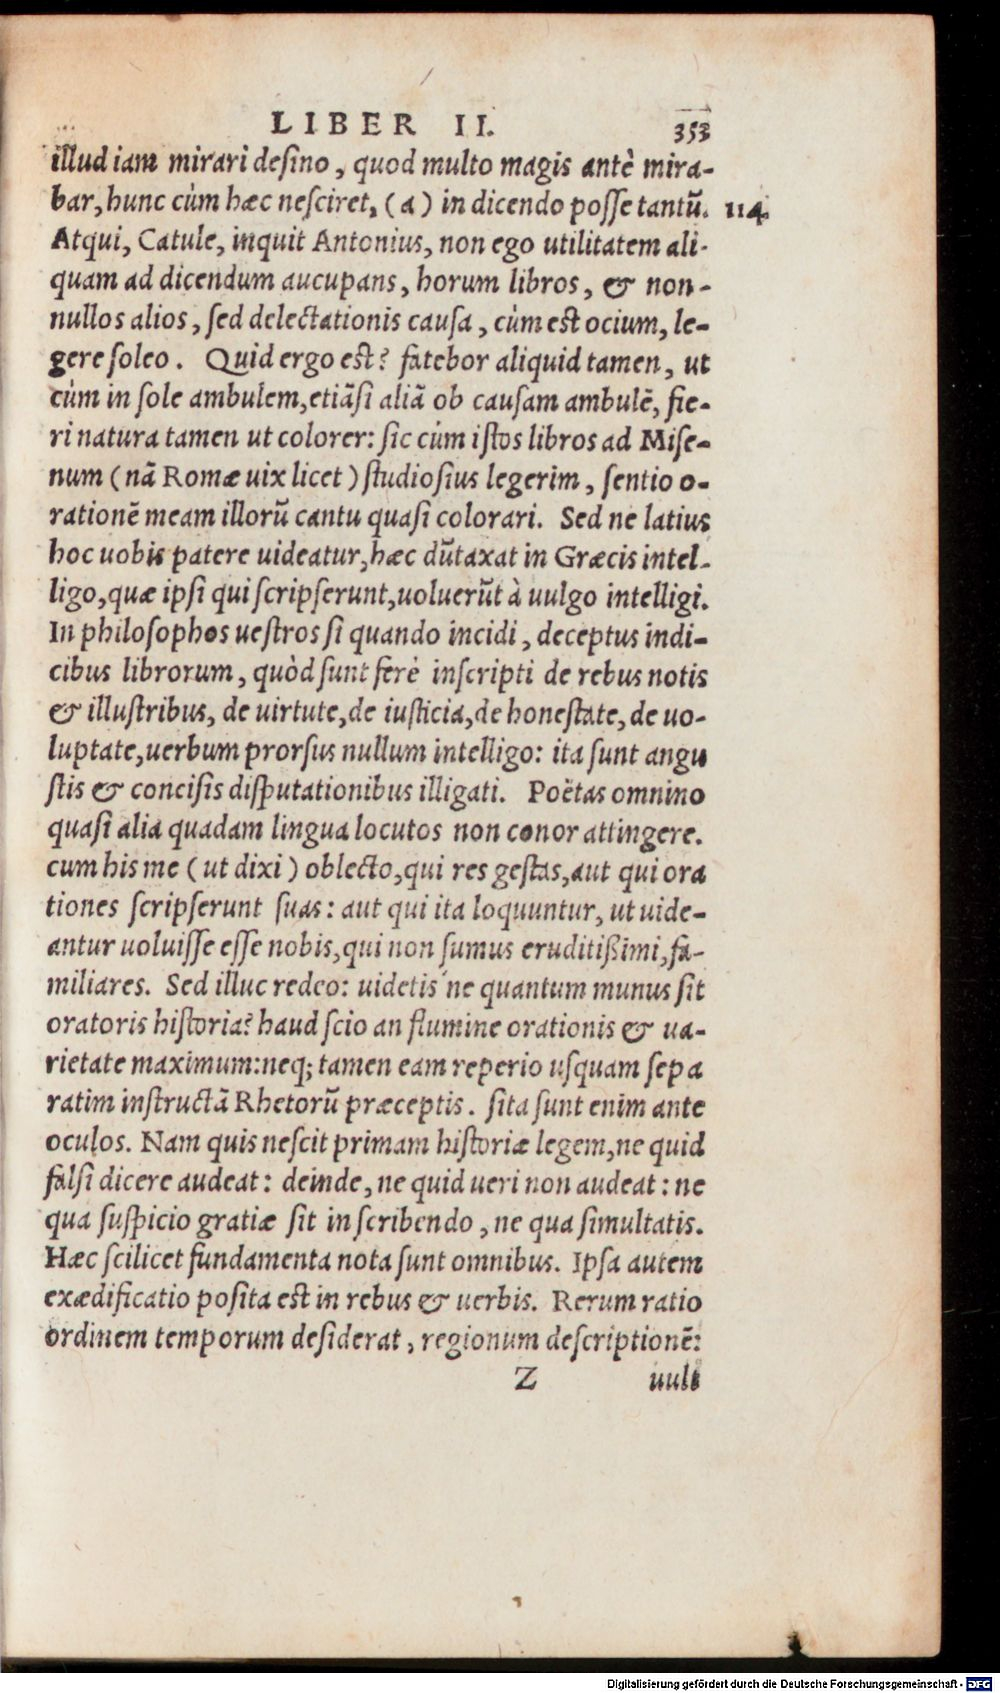 LIBER II. 353
illud iam mirari desino, quod multo magis antè mira-
bar, hunc cùm hæc nesciret, (a) in dicendo posse tantũ. 114.
Atqui, Catule, inquit Antonius, non ego utilitatem ali-
quam ad dicendum aucupans, horum libros, & non-
nullos alios, sed delectationis causa, cùm est ocium, le-
gere soleo. Quid ergo est? fatebor aliquid tamen, ut
cùm in sole ambulem, etiãsi aliã ob causam ambulẽ, fie-
ri natura tamen ut colorer: sic cùm istos libros ad Mise-
num (nã Romæ uix licet) studiosius legerim, sentio o-
rationẽ meam illorũ cantu quasi colorari. Sed ne latius
hoc uobis patere uideatur, hæc dũtaxat in Græcis intel-
ligo, quæ ipsi qui scripserunt, uoluerũt à uulgo intelligi.
In philosophos uestros si quando incidi, deceptus indi-
cibus librorum, quòd sunt ferè inscripti de rebus notis
& illustribus, de uirtute, de iusticia, de honestate, de uo-
luptate, uerbum prorsus nullum intelligo: ita sunt angu
stis & concisis disputationibus illigati. Poëtas omnino
quasi alia quadam lingua locutos non conor attingere.
cum his me (ut dixi) oblecto, qui res gestas, aut qui ora
tiones scripserunt suas: aut qui ita loquuntur, ut uide-
antur uoluisse esse nobis, qui non sumus eruditißimi, fa-
miliares. Sed illuc redeo: uidetis'ne quantum munus sit
oratoris historia? haud scio an flumine orationis & ua-
rietate maximum: neq; tamen eam reperio usquam sepa
ratim instructã Rhetorũ præceptis. sita sunt enim ante
oculos. Nam quis nescit primam historiæ legem, ne quid
falsi dicere audeat: deinde, ne quid ueri non audeat: ne
qua suspicio gratiæ sit in scribendo, ne qua simultatis.
Hæc scilicet fundamenta nota sunt omnibus. Ipsa autem
exædificatio posita est in rebus & uerbis. Rerum ratio
ordinem temporum desiderat, regionum descriptionẽ:
Z uult
Digitalisierung gefördert durch die Deutsche Forschungsgemeinschaft - DFG